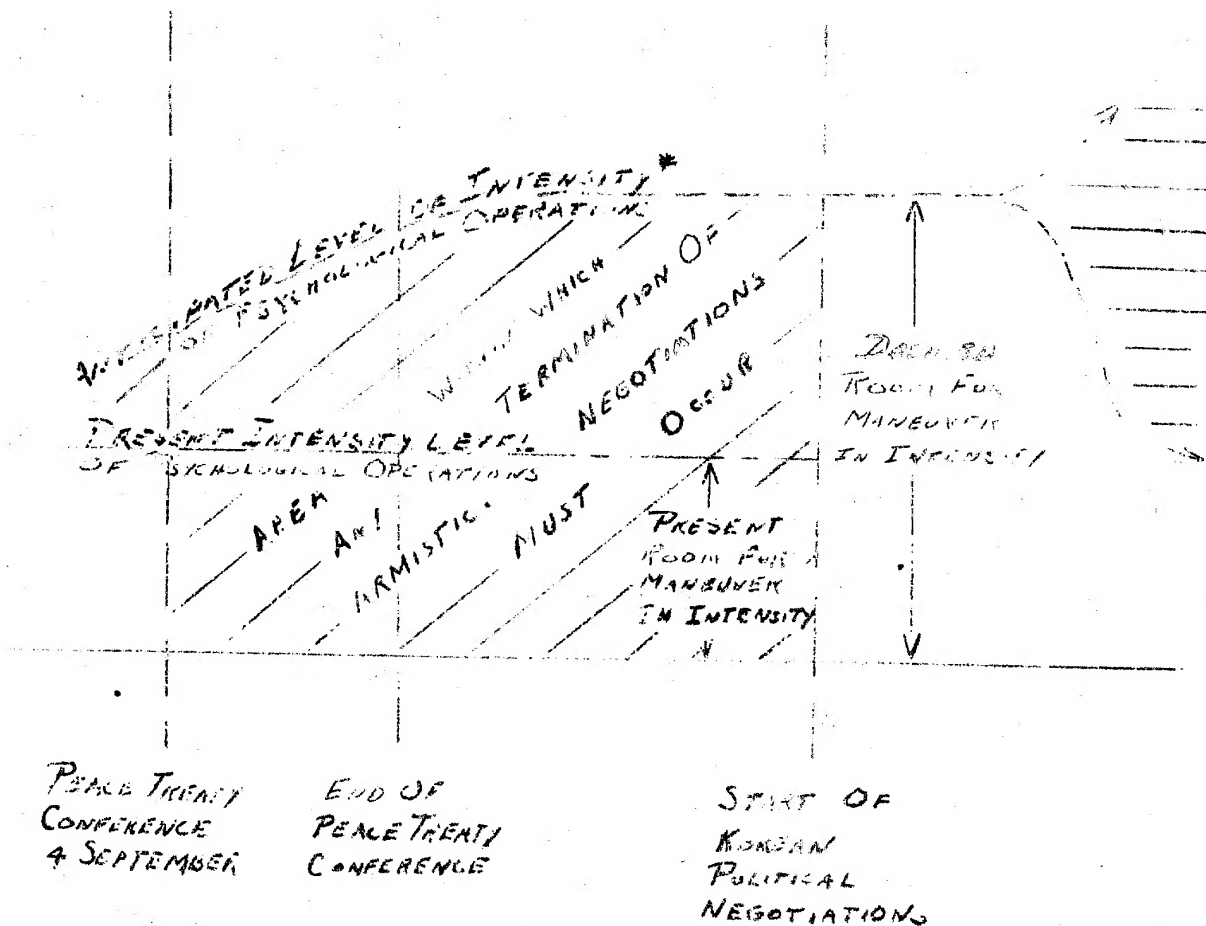 LEVEL OF INTENSITY*
OF PSYCHOLOGICAL OPERATIONS
PRESENT INTENSITY LEVEL
OF PSYCHOLOGICAL OPERATIONS
AREA
WITHIN WHICH
TERMINATION OF
NEGOTIATIONS
MUST
OCCUR
ROOM FOR
MANEUVER
IN INTENSITY
PRESENT
ROOM FOR
MANEUVER
IN INTENSITY
PEACE TREATY
CONFERENCE
4 SEPTEMBER
END OF
PEACE TREATY
CONFERENCE
START OF
KOREAN
POLITICAL
NEGOTIATIONS